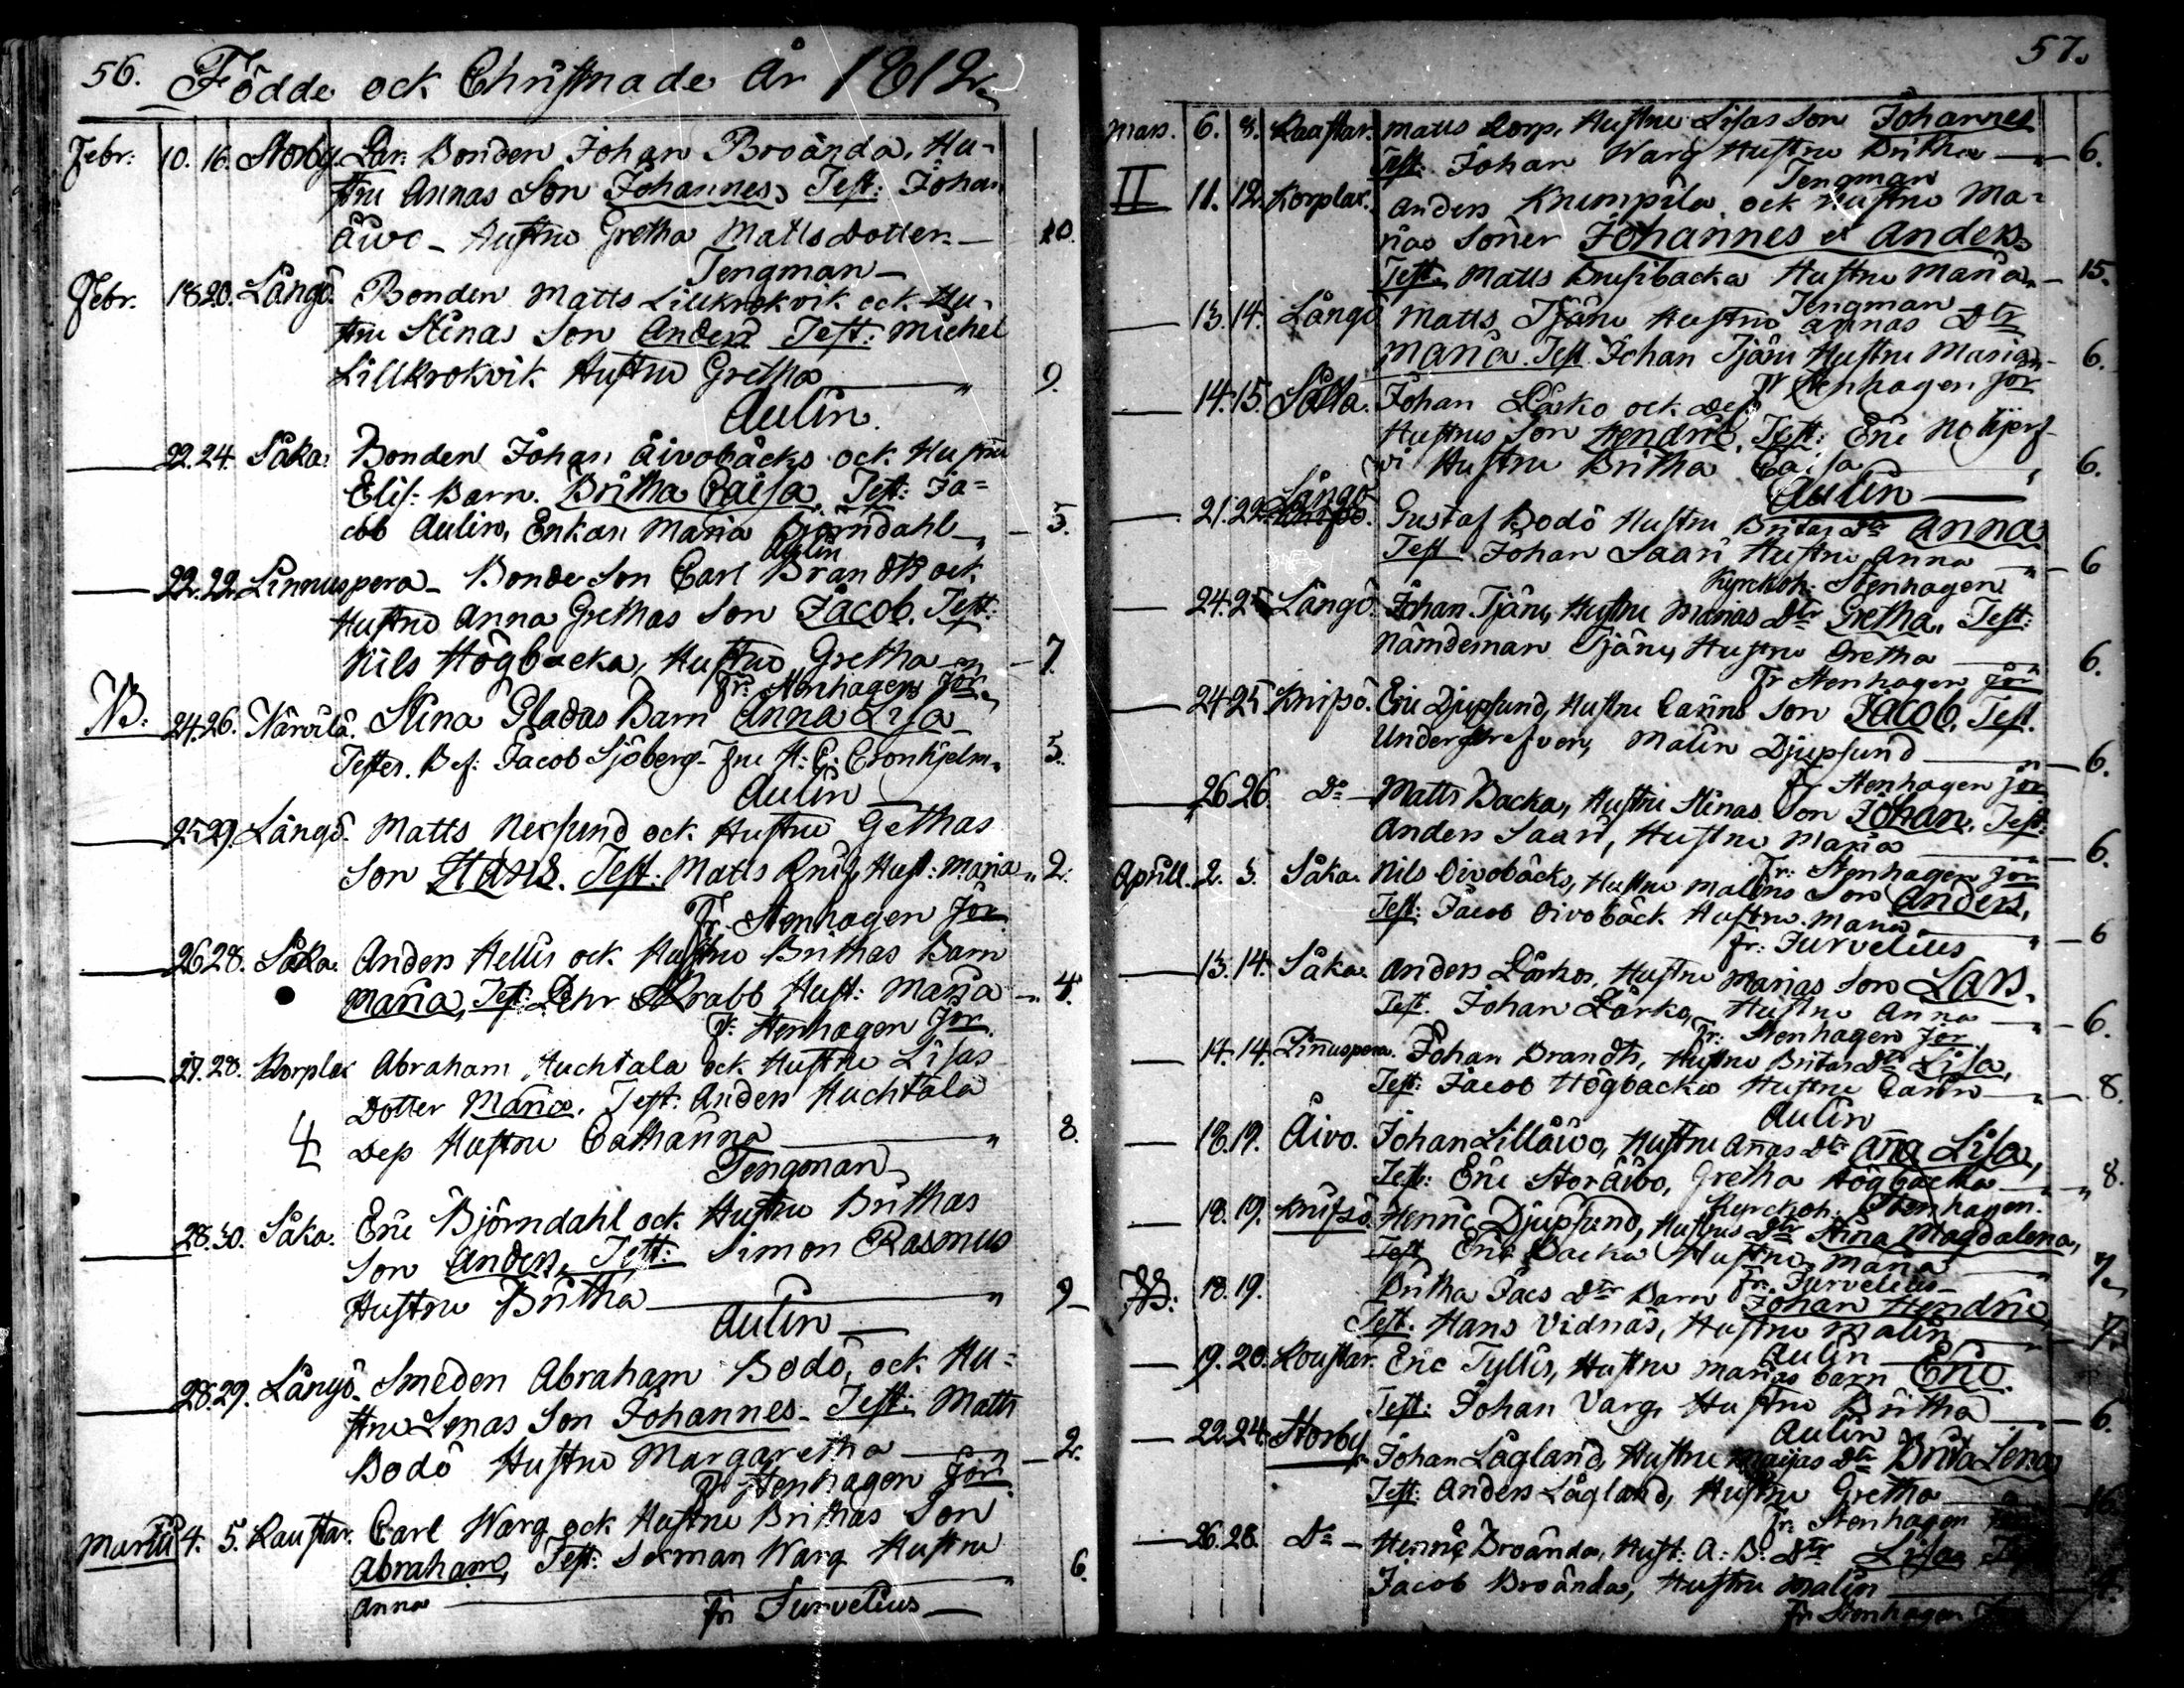 56. Födde ock Christnade År 1812.
Febr: 10. 16. Storby Lan: Bonden Johan Broända, Hu-
stru Annas Son Johannes, Test: Johan
Äiwo - Hustru Gretha Matts dotter - 10.
Tengman -
Febr. 18 20. Långö. Bonden Matts Lillkrokvik ock Hu-
stru Stinas Son Anders Test: Michel
Lillkrokvik Hustru Gretha " 9.
Aulin.
22. 24. Såka. Bonden Johan Äivobäcks ock Hustru
Elis: Barn. Britha Caisa, Test: Ja=
cob Aulin, Enkan Maria Björndahl " - 5.
Aulin
22. 22. Linnuspera - Bonde Son Carl Brandts ock
Hustru Anna Grethas Son Jacob. Test:
Nils Högbacka, Hustru Gretha " - 7.
Fr: Stenhagen Jör.
NB: 24. 26. Närvilä. Stina Gladas Barn Anna Lisa -
Testes. Bef: Jacob Sjöberg - Jne H: C: Cronhjelm " 5.
Aulin
25 29. Långö. Matts Nersund ock Hustru Gethas
Son Hans. Test: Matts Knif, Hust: Maria " 2.
Fr. Stenhagen Jör
26 28. Såka. Anders Hellis ock Hustru Brithas Barn
Maria, Test: Pehr Skrabb Hust: Maria - " 4.
Fr: Stenhagen Jör.
27. 28. Korplax Abraham Huchtala ock Hustru Lisas
Dotter Maria. Test: Anders Huchtala
Dess Hustru Catharina " 8.
Tengman
28. 30. Såka. Eric Björndahl ock Hustru Brithas
Son Anders, Test: Simon Rasmus
Hustru Britha " 9 -
Aulin
28 29. Långö. Smeden Abraham Bodö, ock Hu=
stru Lenas Son Johannes. Test: Matts
Bodö Hustru Margaretha " - 2.
Fr Stenhagen Jör.
Martii 4. 5. Raustar. Carl Warg ock Hustru Brithas Son
Abraham, Test: Sexman Warg Hustru
Anna " 6.
Fr: Jurvelius -
57.
Mars. 6. 8. Raustar. Matts Korp. Hustru Lisas Son Johannes
Test: Johan Warg Hustru Britha " - 6.
Tengman
II 11. 12. Korplax. Anders Knimpila ock Hustru Ma=
rias Söner Johannes et Anders,
Test. Matts Brusibacka Hustru Maria " - 15.
Tengman
13. 14. Långö Matts Tjäru Hustru Annas Dtr
Maria. Test Johan Tjäru Hustru Maria " - 6.
Fr Stenhagen Jör
14. 15. Såka. Johan Lårko ock Dess
Hustrus Son Hendric, Test: Eric
Hustru Britha Caisa " 6.
Aulin
21. 22. Långö Gustaf Bodö Hustru Britas Dtr Anna
Test Johan Saari Hustru Anna " - 6
Kyrckoh: Stenhagen
24. 25 Långö. Johan Tjäru, Hustru Marias Dtr Gretha, Test:
Nämdeman Tjäru, Hustru Gretha " 6.
Fr Stenhagen Jör
24 25 Knifsö. Eric Djupsund, Hustru Carins Son Jacob, Test.
Malin Djupsund " - 6.
Fr Stenhagen Jör
26 26 Do - Matts Backa, Hustru Stinas Son Johan, Test:
Anders Saari, Hustru Maria - 6.
Fr: Stenhagen Jör
Aprill. 2. 3. Såka. Nils Oivobäcks, Hustru Malins Son Anders,
Test: Jacob Oivobäck Hustru Maria " - 6
Fr: Jurvelius
13. 14. Såka. Anders Lårko, Hustru Marias Son Lars,
Test. Johan Lårko, Hustru Anna " - 6.
Fr: Stenhagen Jör
14. 14. Linnuspera. Johan Brandts, Hustru Britas Dtr Lisa,
Test: Jacob Högbacka Hustru Carin " 8.
Aulin
18. 19. Äivo. Johan Lilläiwo, Hustru Annas Dtr Anna Lisa,
Test: Eric Storäivo, Gretha Högbacka " 8.
Kyrckoh: Stenhagen.
18. 19. Knifsö. Henric Djupsund, Hustrus Dtr Stina Magdalena,
Test Eric Backa Hustru Maria " 7.
Fr: Jurvelius -
NB: 18. 19. Britha Jacs Dtr Barn Johan Hendric,
Test. Hans Vidnäs, Hustru Malin " 7.
Aulin
19. 20. Roustar. Eric Tyllis, Hustru Marias barn Eric.
Test: Johan Varg, Hustru Britha - 6.
Aulin
22. 24. Storby Johan Lågland, Hustru Majas Dtr Brita Lena
Test: Anders Lågland, Hustru Gretha 16.
Fr: Stenhagen
26. 28. Do - Henric Broända, Hust: A: B: Dtr Lisa
Jacob Broända, Hustru Malin
Fr Stenhagen